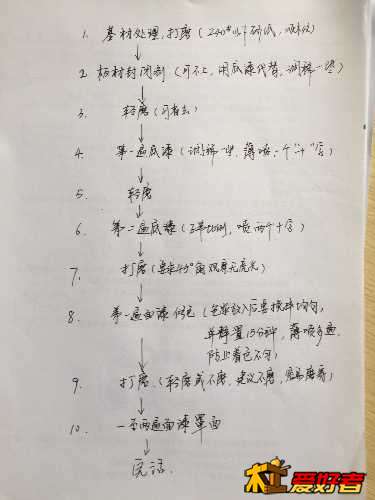 1. 基材处理,打磨(240#以下砂纸,顺纹)
2. 板材封闭剂(可不上,用底漆代替,调稀一些)
3. 轻磨(可省去)
4. 第一遍底漆(调稀一些,薄喷一个"十"字)
5. 轻磨
6. 第二遍底漆(正常比例,喷两个十字)
7. 打磨(要求45°角观看无亮光)
8. 第一遍面漆修色(色浆放入后要搅拌均匀,
并静置15分钟,薄喷多遍,
防止着色不匀)
9. 打磨,(轻磨或不磨,建议不磨,容易磨穿)
10. 一至两遍面漆罩面
完活.
木工爱好者